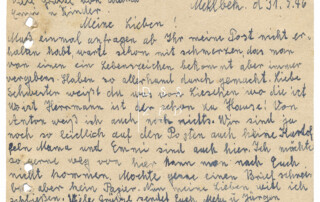 Mehlbek. d 31.3.46
Meine Lieben!
Muß einmal anfragen ob Ihr meine Post nicht er-
halten habt warte schon mit schmerzen, das man
von einem ein Lebenszeichen bekommt aber immer
vergebens. Haben so allerhand durch gemacht. Liebe
Schwestern weißt du wo Lieschen wo die ist
Herrmann ist der schon zu Hause? Von
Anton weiß ich auch noch nichts. Wir sind ja
noch so leidlich auf den Posten auch keine Kartof
feln Mama und Emmi sind auch hier. Ich möcht
so gerne weg von hier kann man nach Euch
nicht kommen. Mochte gerne einen Brief schrei
ben aber kein Papier. Nun meine Lieben will ich
schließen. Viele Grüße sendet Euch Meta u Jürgen